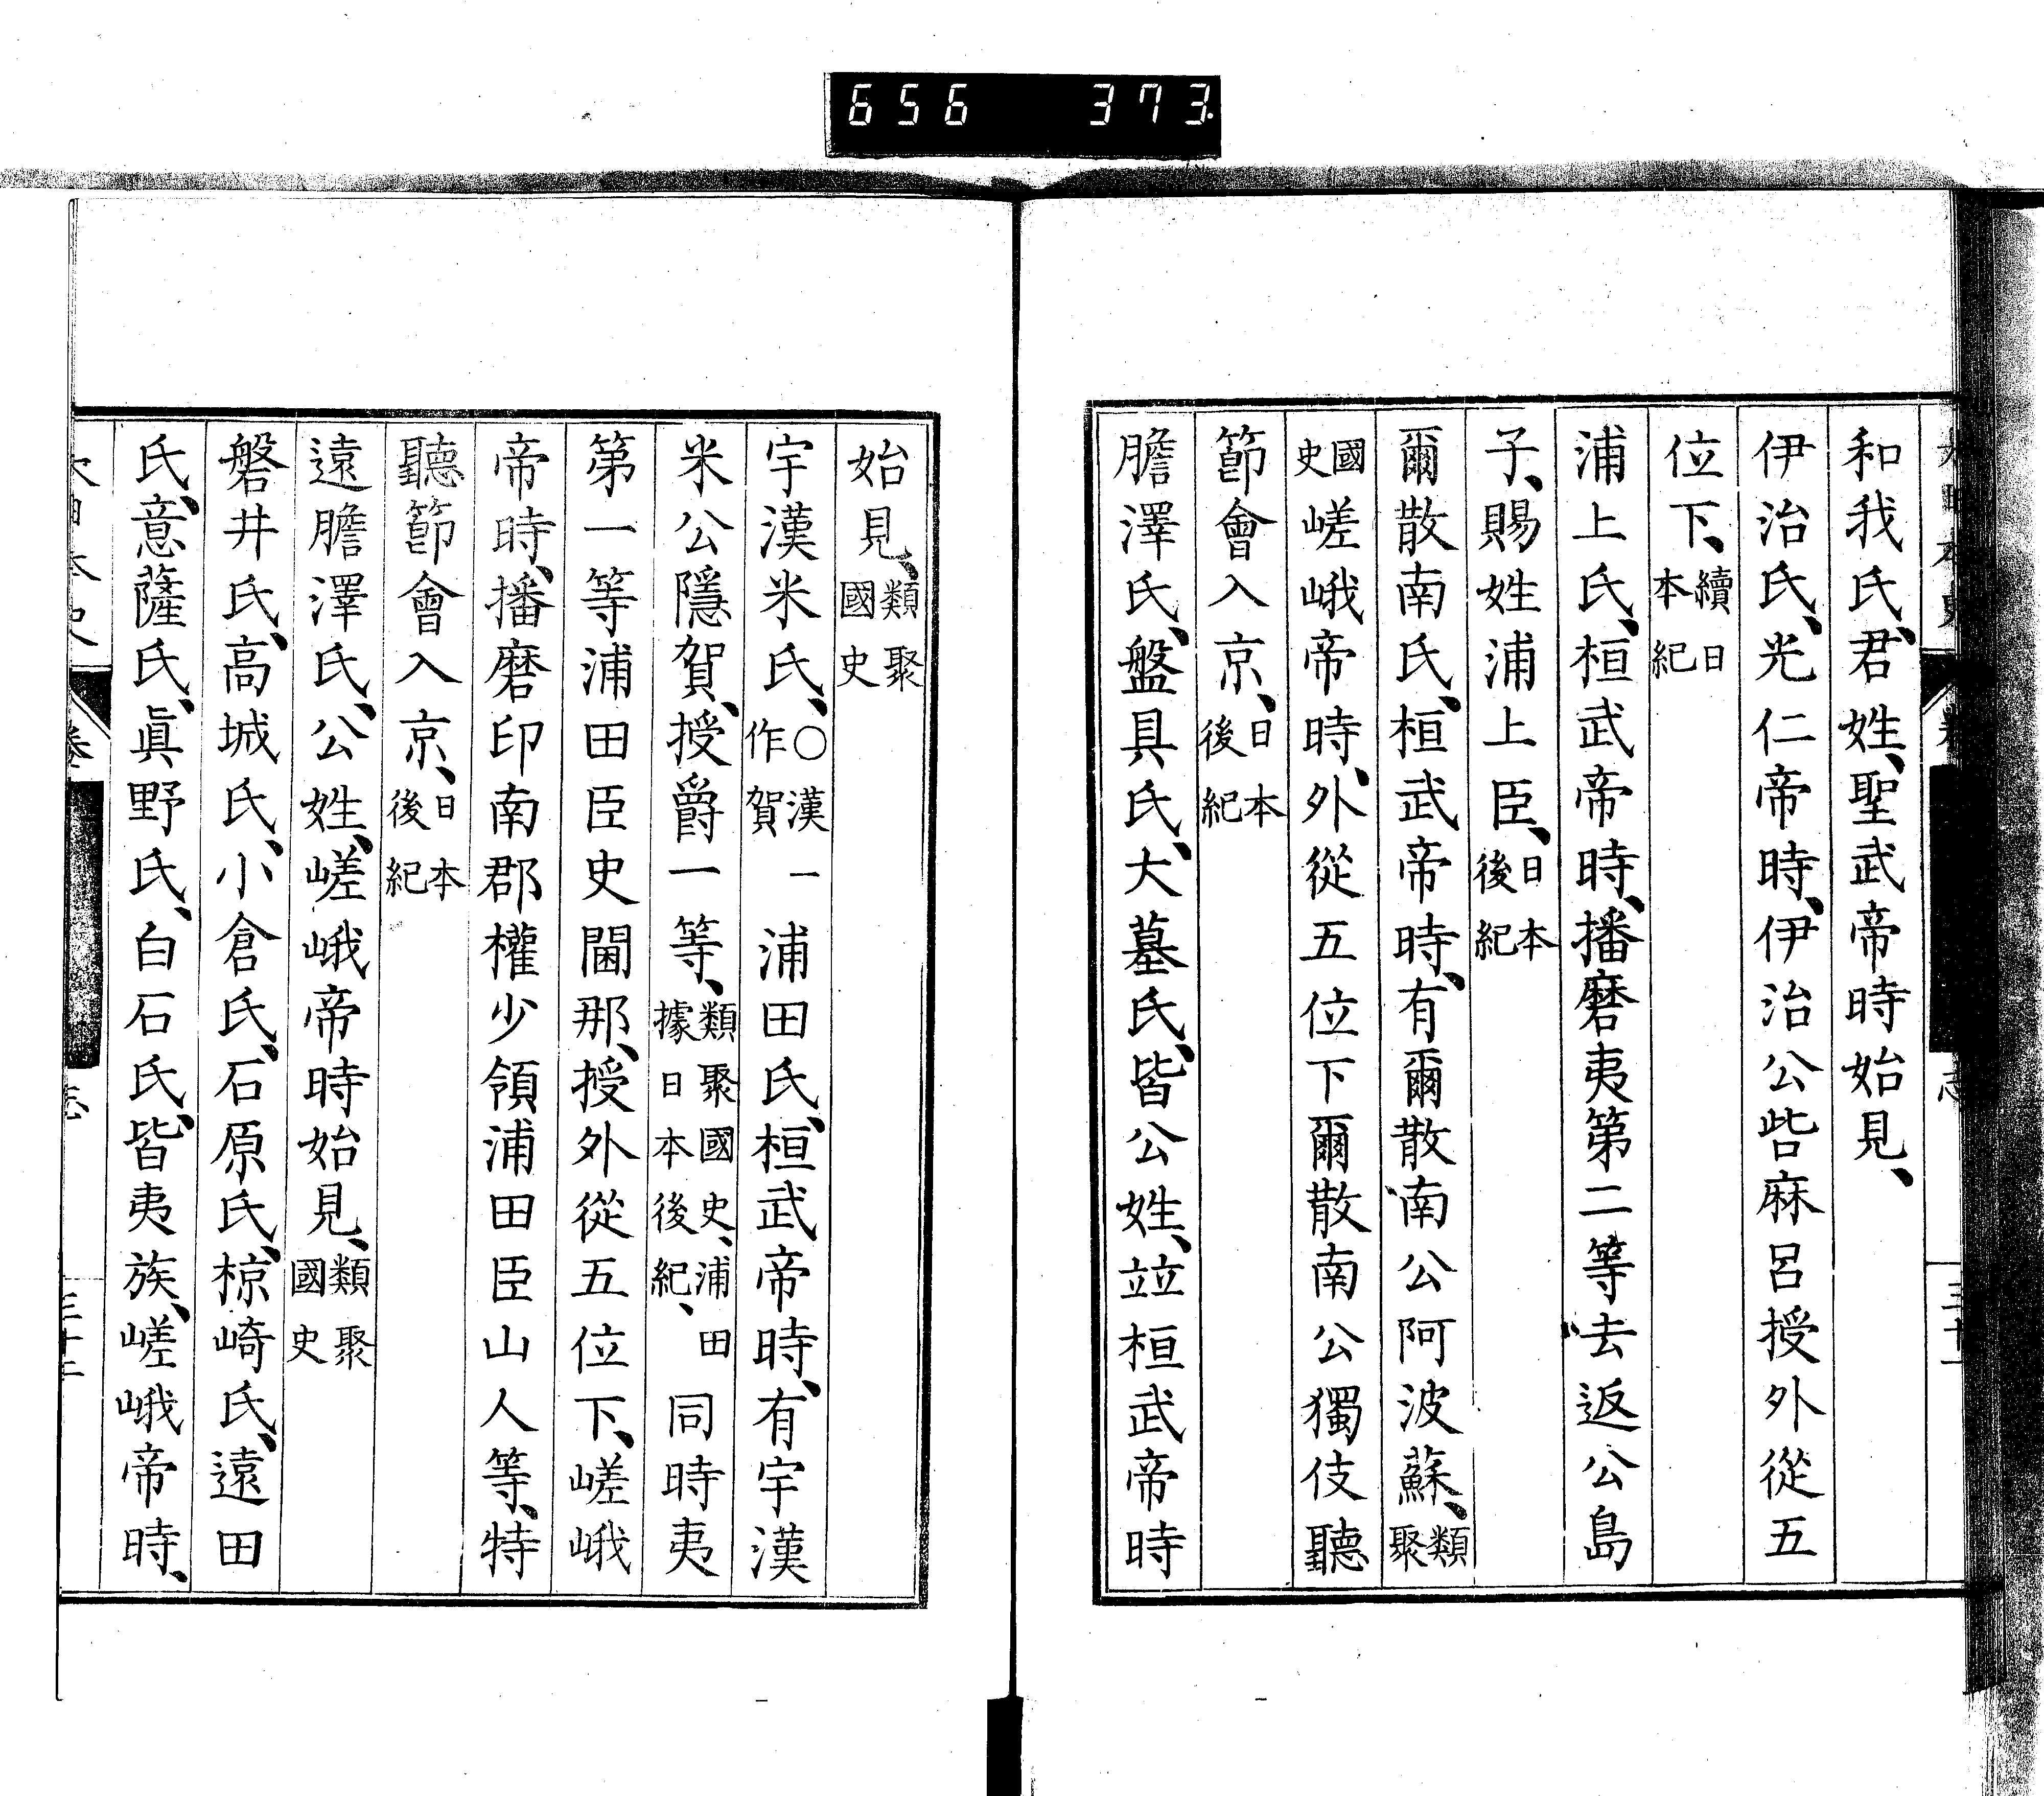 656 373
和我氏、君姓、聖武帝時始見、
伊治氏、光仁帝時、伊治公呰麻呂授外從五
位下、續日本紀
浦上氏、桓武帝時、播磨夷第二等去返公島
子、賜姓浦上臣、日本後紀
爾散南氏、桓武帝時、有爾散南公阿波蘇、類聚
國史嵯峨帝時、外從五位下爾散南公獨伎聽
節會入京、日本後紀
膽澤氏、盤具氏、大墓氏、皆公姓、竝桓武帝時
始見、類聚國史
宇漢米氏、○漢一作賀浦田氏、桓武帝時、有宇漢
米公隱賀、授爵一等、類聚國史、浦田據日本後紀、同時夷
第一等浦田臣史閫那、授外從五位下、嵯峨
帝時、播磨印南郡權少領浦田臣山人等、特
聽節會入京、日本後紀
遠膽澤氏、公姓、嵯峨帝時始見、類聚國史
磐井氏、高城氏、小倉氏、石原氏、椋崎氏、遠田
氏、意薩氏、眞野氏、白石氏、皆夷族、嵯峨帝時、